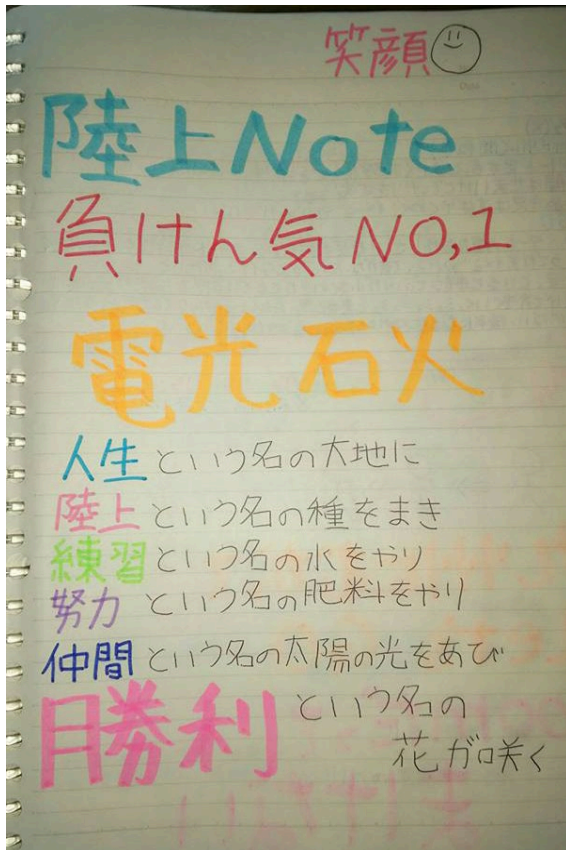 笑顔
陸上Note
負けん気NO,1
電光石火
人生という名の大地に
陸上という名の種をまき
練習という名の水をやり
努力という名の肥料をやり
仲間という名の太陽の光をあび
勝利という名の
花が咲く